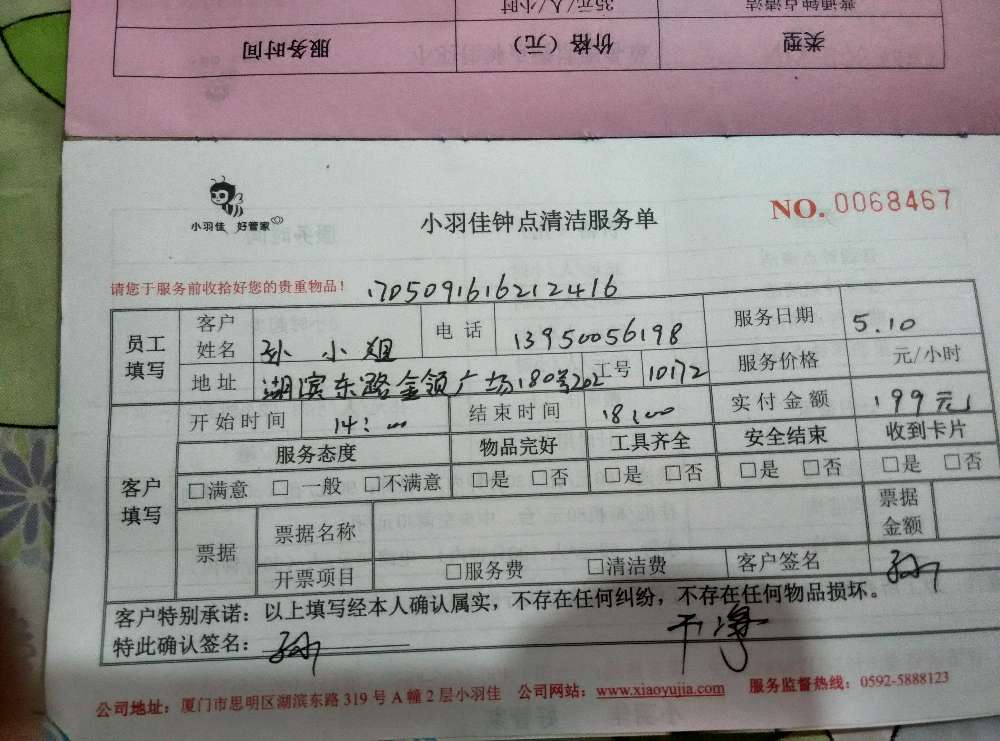 普通钟点清洁 35元/人/小时
类型 价格（元） 服务时间
小羽佳 好管家
小羽佳钟点清洁服务单
NO. 0068467
请您于服务前收拾好您的贵重物品！ 170509161621 2416
员工填写 客户姓名 孙小姐 电话 13950056198 服务日期 5.10
地址 湖滨东路金领广场180号202 工号 10172 服务价格 元/小时
客户填写 开始时间 14:00 结束时间 18:00 实付金额 199元
服务态度 物品完好 工具齐全 安全结束 收到卡片
□满意 □一般 □不满意 □是 □否 □是 □否 □是 □否 □是 □否
票据 票据名称 票据金额
开票项目 □服务费 □清洁费 客户签名 孙
客户特别承诺：以上填写经本人确认属实，不存在任何纠纷，不存在任何物品损坏。
特此确认签名： 孙 干净
公司地址：厦门市思明区湖滨东路 319 号 A 幢 2 层小羽佳 公司网站：www.xiaoyujia.com 服务监督热线：0592-5888123